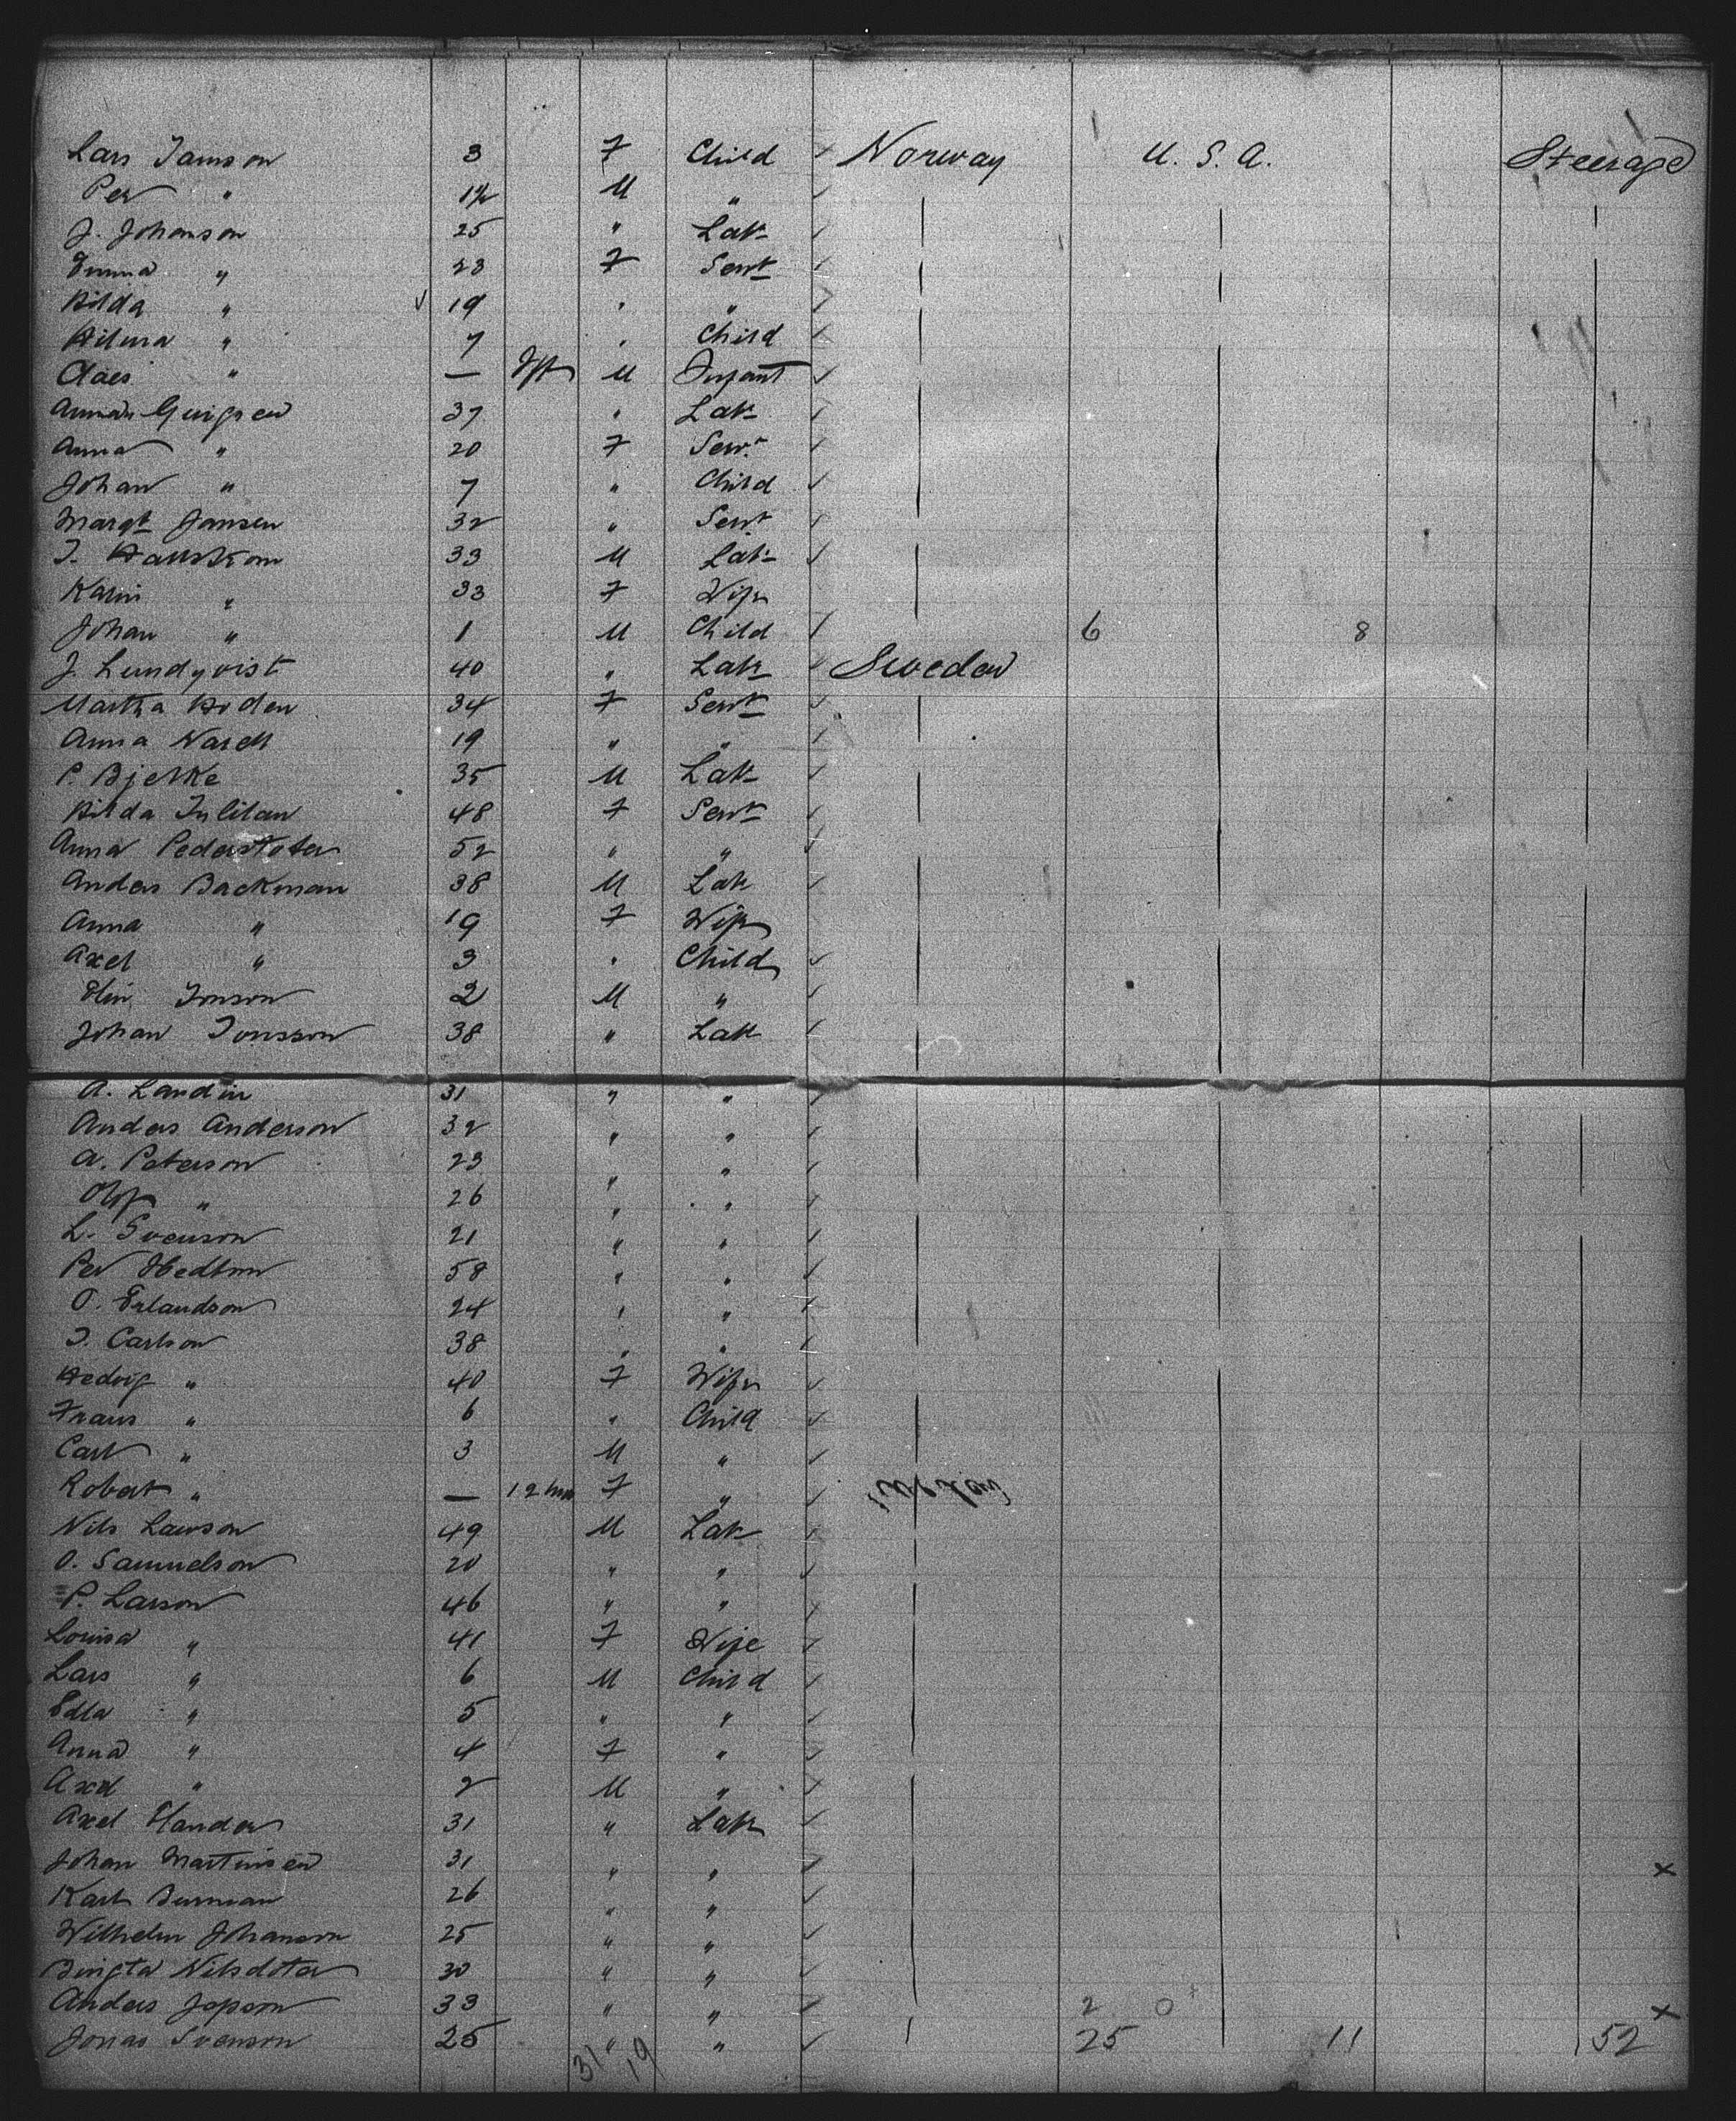 Lars Janson 3 F Child Norway U. S. A. Steerage
Per " 1½ M "
J. Johanson 25 " Lab
Emma " 28 F Servt
Hilda " 19 " "
Hilma " 7 " Child
Claes " — M Infant
37 " Lab
Anna " 20 F Servt
Johan " 7 " Child
Margt Jansen 32 " Servt
J. Hallstrom 33 M Lab
Karin " 33 F Wife
Johan " 1 M Child 6 8
J. Lundqvist 40 " Lab Sweden
Martha Hoden 34 F Servt
Anna 19 " "
P. Bjerke 35 M Lab
Hilda 48 F Servt
Anna 52 " "
Anders Backman 38 M Lab
Anna " 19 F Wife
Axel " 3 " Child
Elin Jonson 2 M "
Johan Jonsson 38 " Lab
A. Landin 31 " "
Anders Anderson 32 " "
A. Peterson 23 " "
Olof " 26 " "
L. Svenson 21 " "
Per 58 " "
O. Erlandson 24 " "
J. Carlson 38 " "
Hedvig " 40 F Wife
Frans " 6 " Child
Carl " 3 M "
Robert " — 12 F "
Nils Lawson 49 M Lab
O. Samuelson 20 " "
P. Larson 46 " "
Louisa " 41 F Wife
Lars " 6 M Child
Edla " 5 " "
Anna " 4 F "
Axel " 2 M "
Axel 31 " Lab
Johan Martinsen 31 " " x
Karl Burman 26 " "
Wilhelm Johanson 25 " "
Bengta Nilsdoter 30 " "
Anders Jepson 33 " " 2 0 x
Jonas Svenson 25 " " 25 11 52
31 19